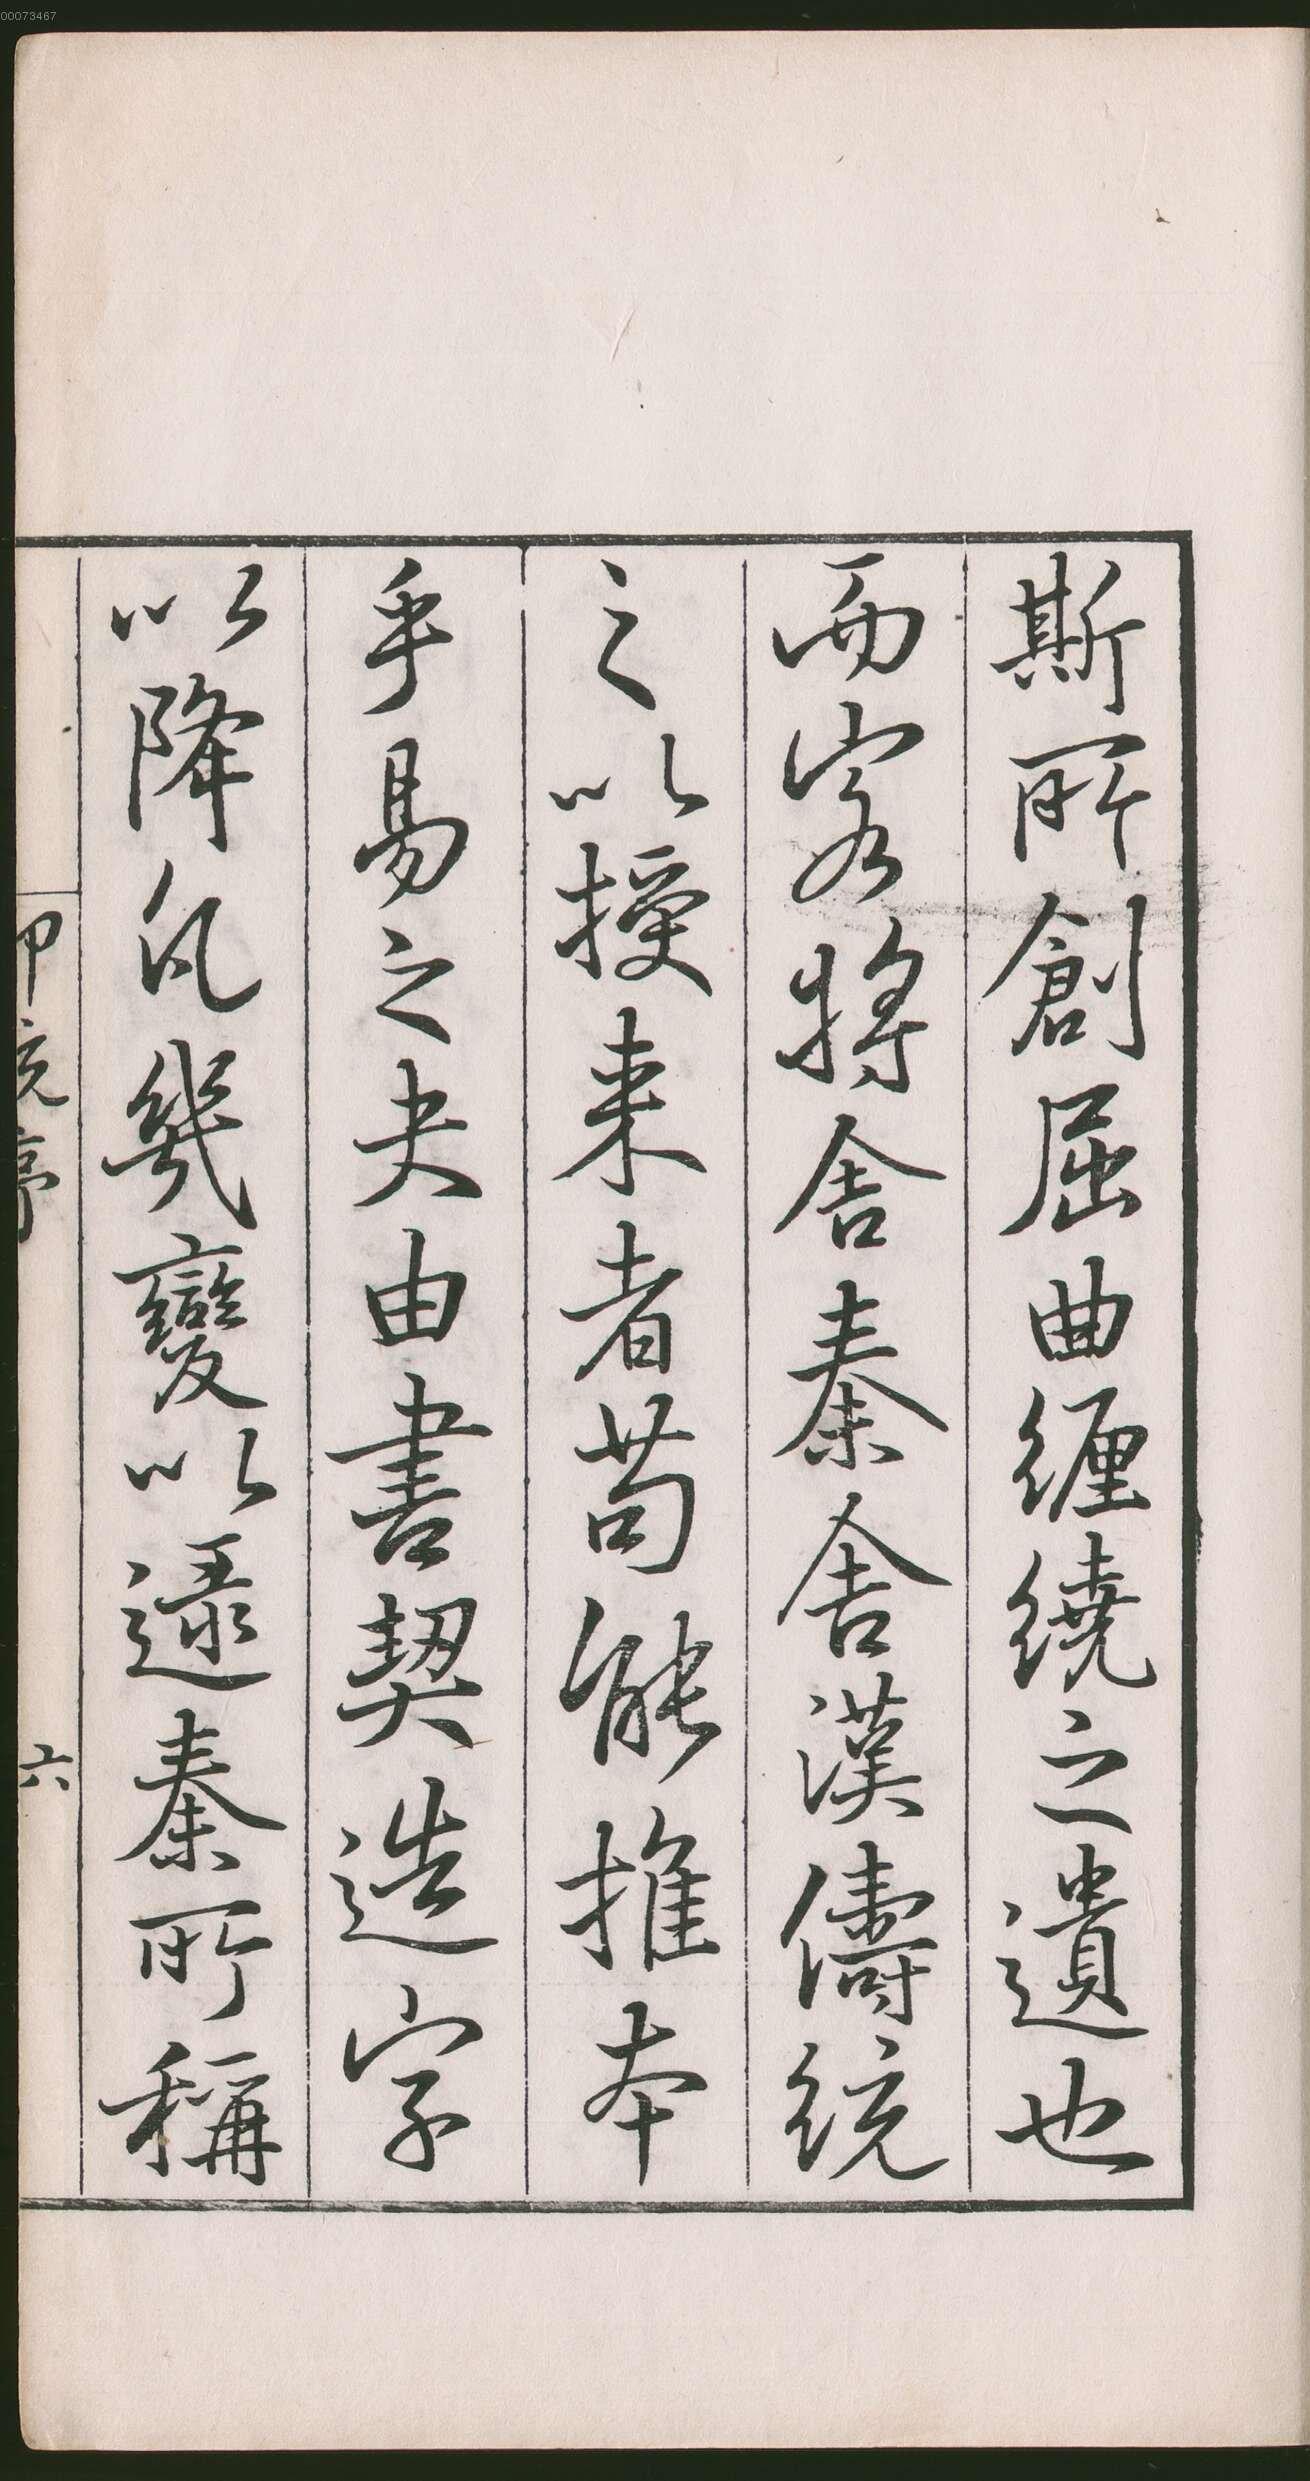 斯所創屈曲纏繞之遺也
而客將舍秦舍漢儔統
之以授來者苟能推本
乎易之夬由書契造字
以降凡幾變以逯秦所稱
印文序
六
00073467